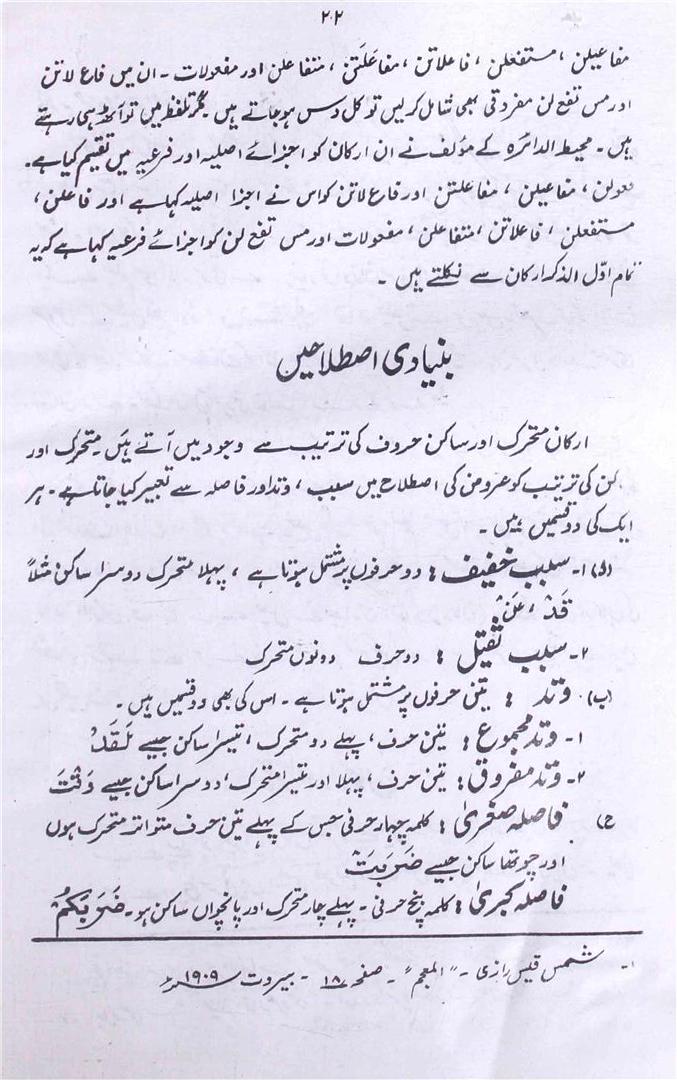 ۲۰۲
مفاعیلن ، مستفعلن ، فاعلاتن ، مفاعَلَتن ، متفاعلن اور مفعولات ۔ ان میں فاع لاتن
اور مس تفع لن مفروقی بھی شامل کرلیں تو کل دس ہوجاتے ہیں ۔ مگر تلفظ میں تو آٹھ ہی رہتے
ہیں ۔ محیط الدائرہ کے مؤلف نے ان ارکان کو اجزائے اصلیہ اور فرعیہ میں تقسیم کیا ہے ۔
فعولن ، مفاعیلن ، مفاعلتن اور فاع لاتن کو اس نے اجزا اصلیہ کہا ہے اور فاعلن ،
مستفعلن ، فاعلاتن ، متفاعلن ، مفعولات اور مس تفع لن کو اجزائے فرعیہ کہا ہے کہ یہ
تمام اوّل الذکر ارکان سے نکلتے ہیں ۔
بنیادی اصطلاحیں
ارکان متحرک اور ساکن حروف کی ترتیب سے وجود میں آتے ہیں ۔ متحرک اور
کن کی ترتیب کو عروض کی اصطلاح میں سبب ، وتد اور فاصلہ سے تعبیر کیا جاتا ہے ۔ ہر
ایک کی دو قسمیں ہیں ۔
(ا) ۱۔ سبب خفیف : دو حرفوں پر مشتمل ہوتا ہے ، پہلا متحرک دوسرا ساکن مثلاً
قَدْ ،
۲۔ سبب ثقیل : دو حرف دونوں متحرک
(ب) وتد : تین حرفوں پر مشتمل ہوتا ہے ۔ اس کی بھی دو قسمیں ہیں ۔
۱۔ وتد مجموع : تین حرف ، پہلے دو متحرک ، تیسرا ساکن جیسے لَقَدْ
۲۔ وتد مفروق : تین حرف ، پہلا اور تیسرا متحرک ، دوسرا ساکن جیسے
(ج) فاصلہ صغریٰ : کلمہ چہار حرفی جس کے پہلے تین حرف متواتر متحرک ہوں
اور چوتھا ساکن جیسے ضَرَبَتْ
فاصلہ کبریٰ : کلمہ پنج حرفی ۔ پہلے چار متحرک اور پانچواں ساکن ہو ۔ ضَرَبَكُمْ
۱۔ شمس قیس رازی ۔ "المعجم" ۔ صفحہ ۱۸ ۔ بیروت ۱۹۰۹ء